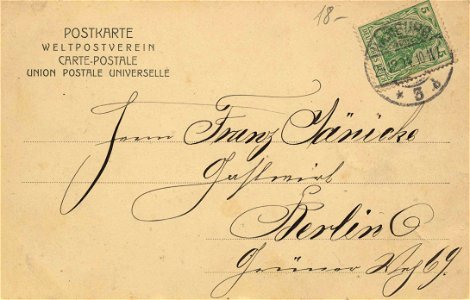 18-
POSTKARTE
WELTPOSTVEREIN
CARTE-POSTALE
UNION POSTALE UNIVERSELLE
5
* 3 b
Herrn Franz Jänicke
Gastwirt
Berlin C
Grüner Weg 69.